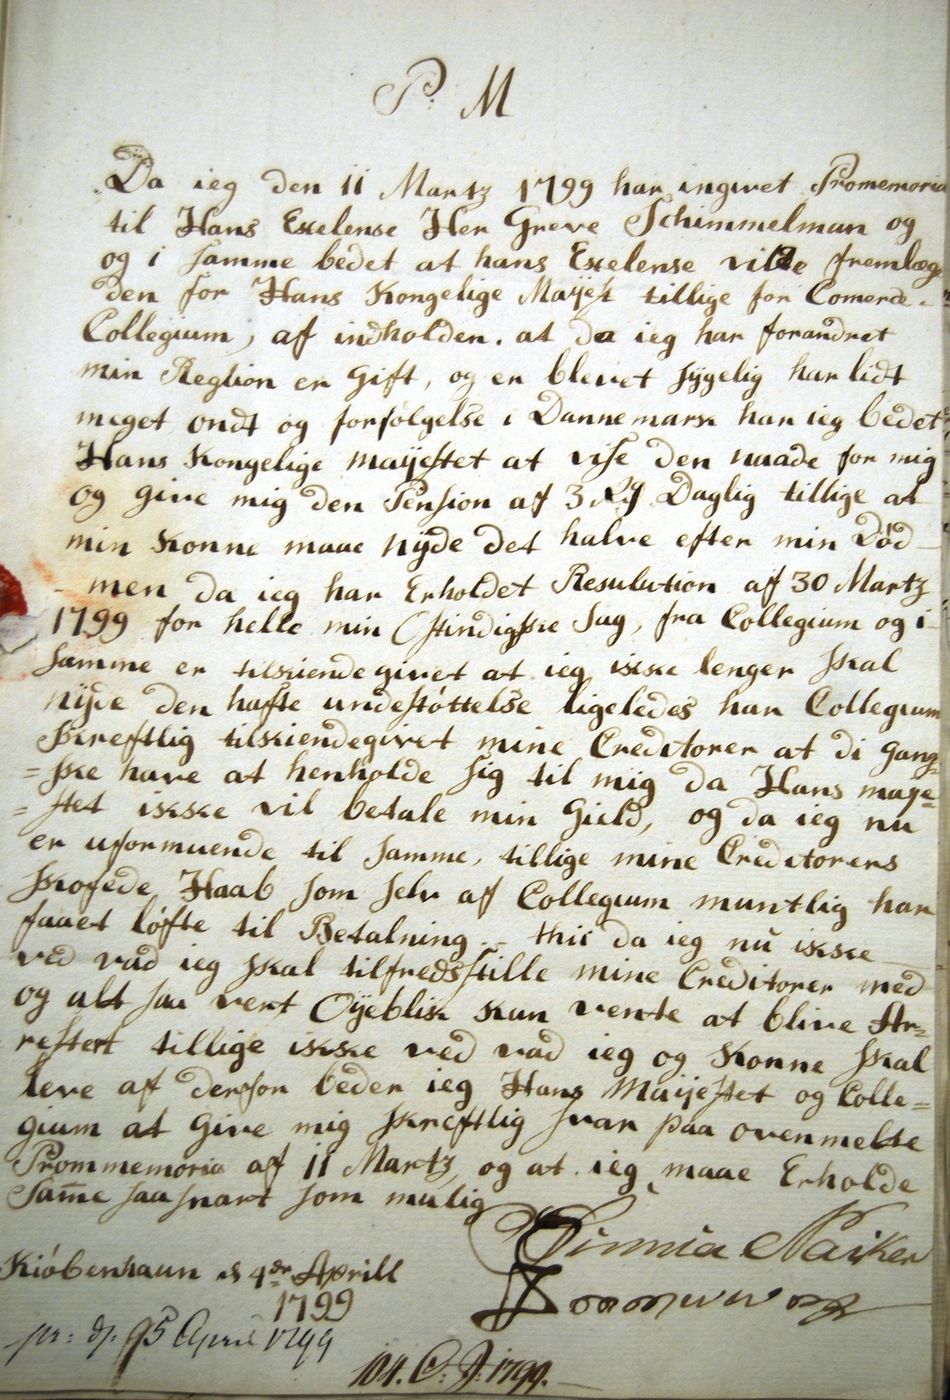 P. M
Da ieg den 11 Martz 1799 har ingivet Promemoria
til Hans Exelense Her Greve Schimmelman og
og i samme bedet at hans Exelense vilde fremlæg
den for Hans Kongelige Mayest tillige for Comerce-
Collegium, af indholden. at da ieg har forandret
min Reglion er Gift, og er blevet sygelig har lidt
meget ondt og forfølgelse i Dannemark har ieg bedet
Hans Kongelige mayestet at vise den naade for mig
og give mig den Pension af 3 Daglig tillige at
min Konne maae nyde det halve efter min Død
- men da ieg har Erholdet Resulution af 30 Martz
1799 for helle min Ostindiske Sag, fra Collegium og i
samme er tilkiendegivet at ieg ikke lenger skal
nyde den hafte undestøttelse ligeledes har Collegium
skreftlig tilkiendegivet mine Creditorer at di gang=
=ske have at henholde sig til mig da Hans maye=
=stet ikke vil betale min Gield, og da ieg nu
er uformuende til samme, tillige mine Creditorers
skofede Haab som selv af Collegium muntlig har
faaet løfte til Betalning - thi da ieg nu ikke
ved vad ieg skal tilfredsstille mine Creditorer med
og alt saa vert Øyeblik kan vente at blive Ar=
restert tillige ikke ved vad ieg og Konne skal
leve af derfor beder ieg Hans Mayestet og Colle=
gium at Give mig skreftlig svar paa ovenmelte
Prommemoria af 11 Martz, og at ieg maae Erholde
Same saa snart som mulig
Tinnia Naiker
Kiøbenhaun d 4de Aprill
1799
pr: d: 5 April 1799
104. C: J: 1799.